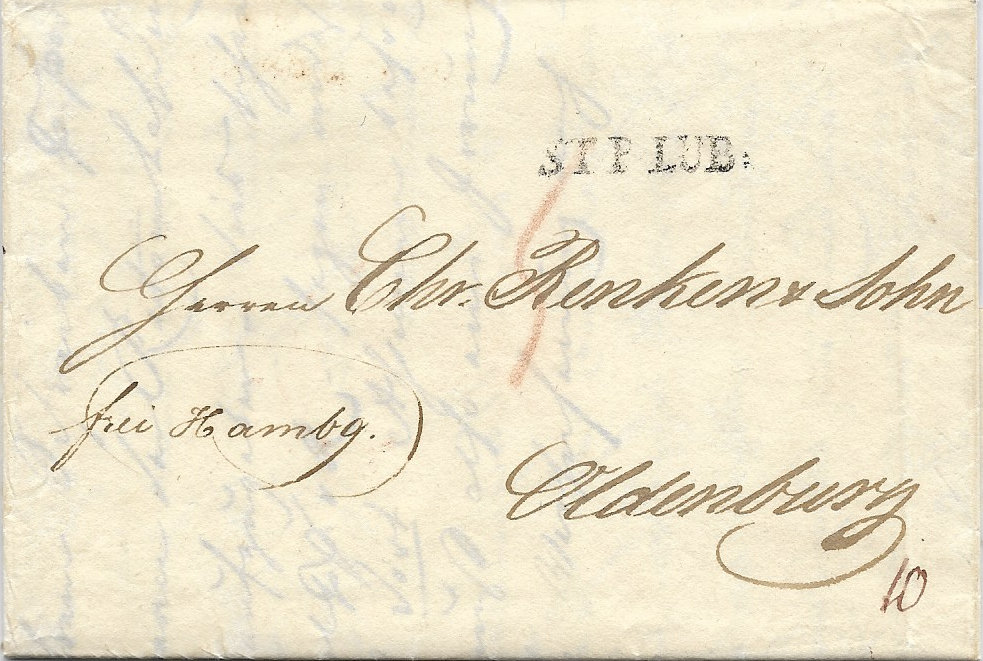 ST P LUB:
Herren Chr. Renken & Sohn
frei Hambg.
Oldenburg
10